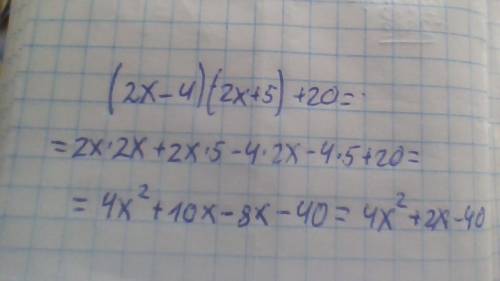 (2x-4)(2x+5)+20=
=2x·2x+2x·5-4·2x-4·5+20=
=4x²+10x-8x-40=4x²+2x-40